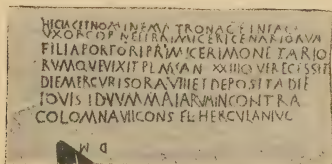 HIC IACIT NOMINE MATRONA C F IN PACE
VXOR CORNELI PRIMICERI CENARIORVM
FILIA PORFORI PRIMICERI MONETARIO
RVM QVE VIXIT PL M AN XXIII QVI RECISSIT
DIE MERCVRIS ORA VIII ET DEPOSITA DIE
IOVIS IDVVM MAIARVM IN CONTRA
COLOMNA VII CONS FL HERCVLANI VC
D M